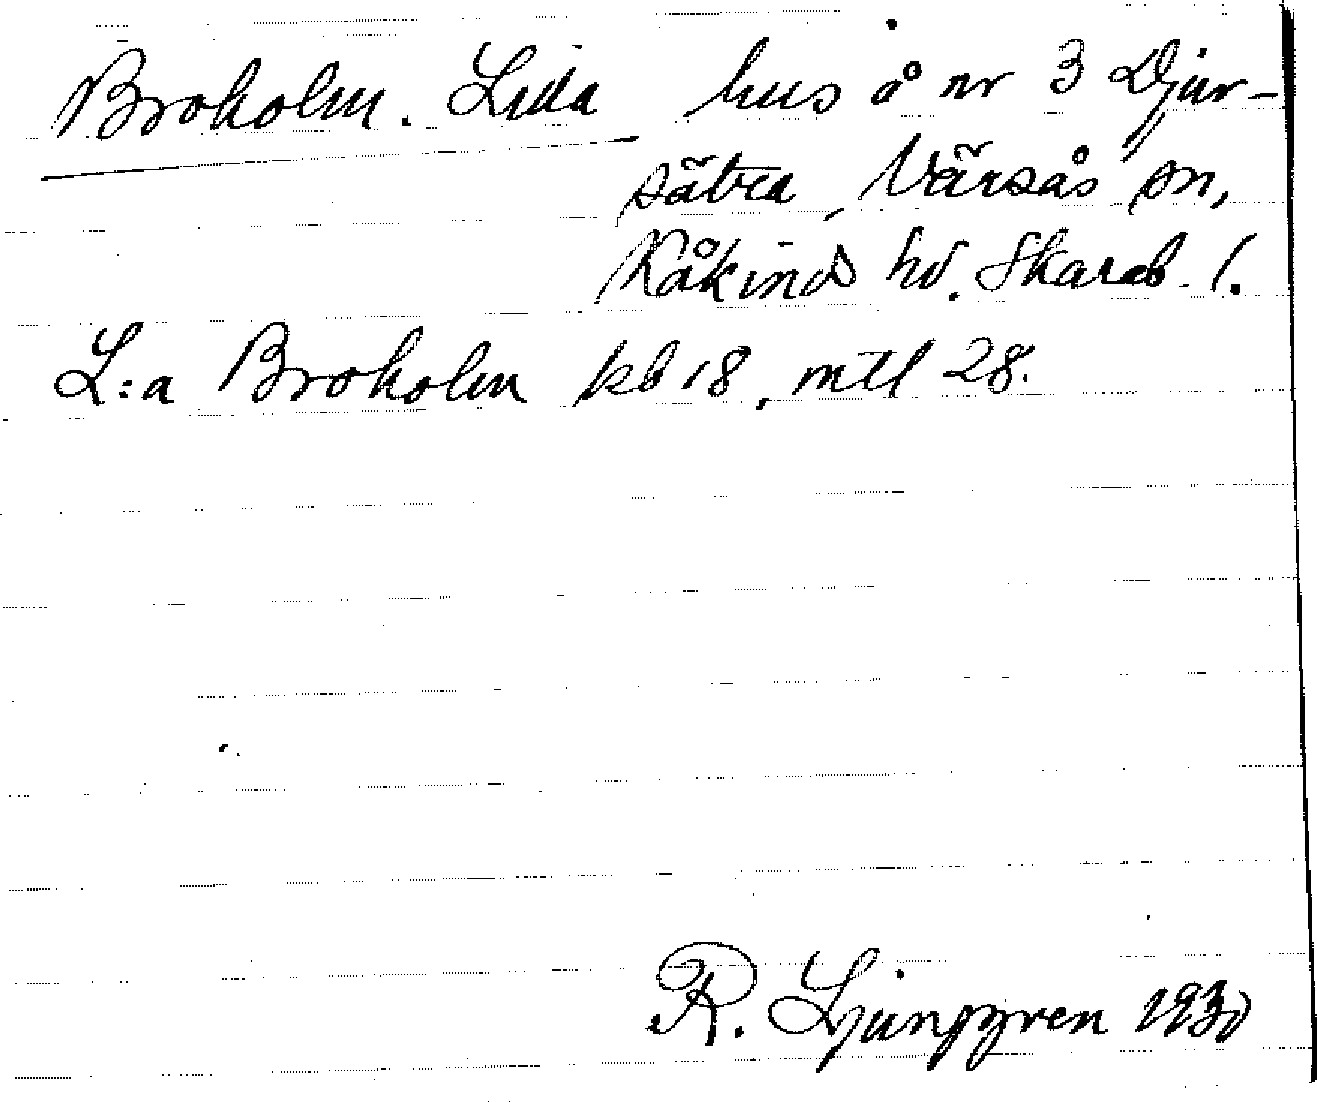 Broholm. Lilla hus å nr 3 Djur-
sätra, Värsås sn,
Kåkind hd. Skarab. l.
L:a Broholm kb 18, mtl 28.
R. Ljunggren 1930